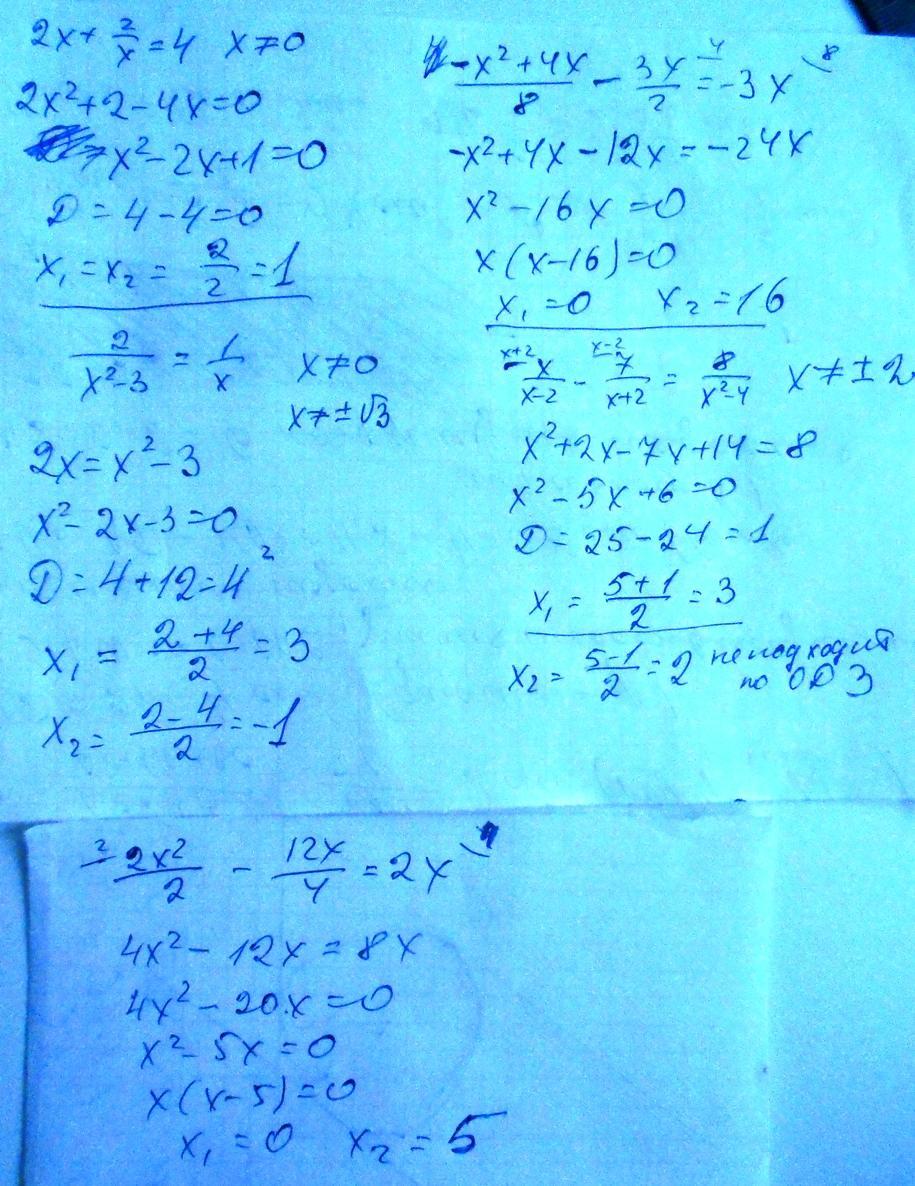 2x + 2/x = 4 x ≠ 0
2x² + 2 - 4x = 0
x² - 2x + 1 = 0
D = 4 - 4 = 0
x₁ = x₂ = 2/2 = 1
2/(x²-3) = 1/x x ≠ 0
x ≠ ±√3
2x = x² - 3
x² - 2x - 3 = 0
D = 4 + 12 = 4²
x₁ = (2+4)/2 = 3
x₂ = (2-4)/2 = -1
(-x² + 4x)/8 - 3x/2 ⁴ = -3x \⁸
-x² + 4x - 12x = -24x
x² - 16x = 0
x(x-16) = 0
x₁ = 0 x₂ = 16
ˣ⁺² x/(x-2) - ˣ⁻² 7/(x+2) = 8/(x²-4) x ≠ ±2
x² + 2x - 7x + 14 = 8
x² - 5x + 6 = 0
D = 25 - 24 = 1
x₁ = (5+1)/2 = 3
x₂ = (5-1)/2 = 2 не подходит
по ОДЗ
² 2x²/2 - 12x/4 = 2x \⁴
4x² - 12x = 8x
4x² - 20x = 0
x² - 5x = 0
x(x-5) = 0
x₁ = 0 x₂ = 5